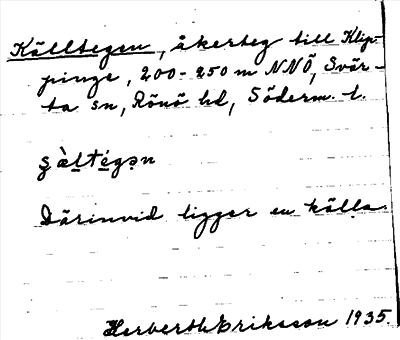 Källtegen, åkerteg till Klip-
pinge, 200-250 m NNÖ, Svär-
ta sn, Rönö hd, Söderm. l.
Därinvid ligger en källa.
Herberth Eriksson 1935.